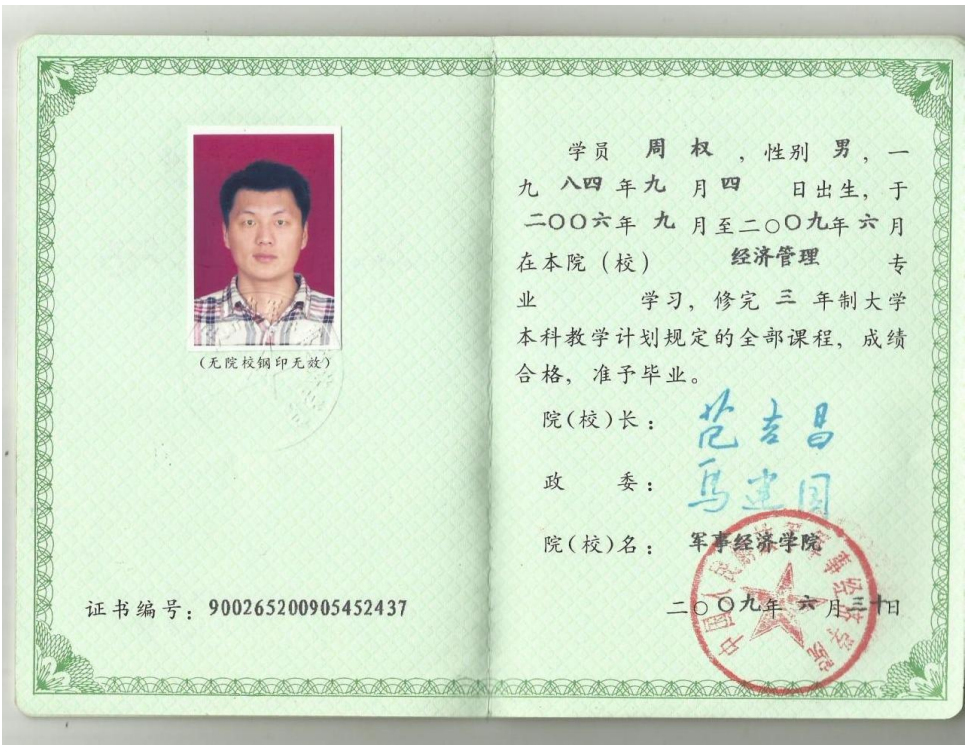 (无院校钢印无效)
证书编号：900265200905452437
学员 周权，性别 男，一
九八四年九月四日出生，于
二〇〇六年九月至二〇〇九年六月
在本院（校） 经济管理 专
业 学习，修完 三 年制大学
本科教学计划规定的全部课程，成绩
合格，准予毕业。
院(校)长： 范吉昌
政 委： 马建国
院(校)名： 军事经济学院
二〇〇九年六月三十日
中国人民解放军军事经济学院